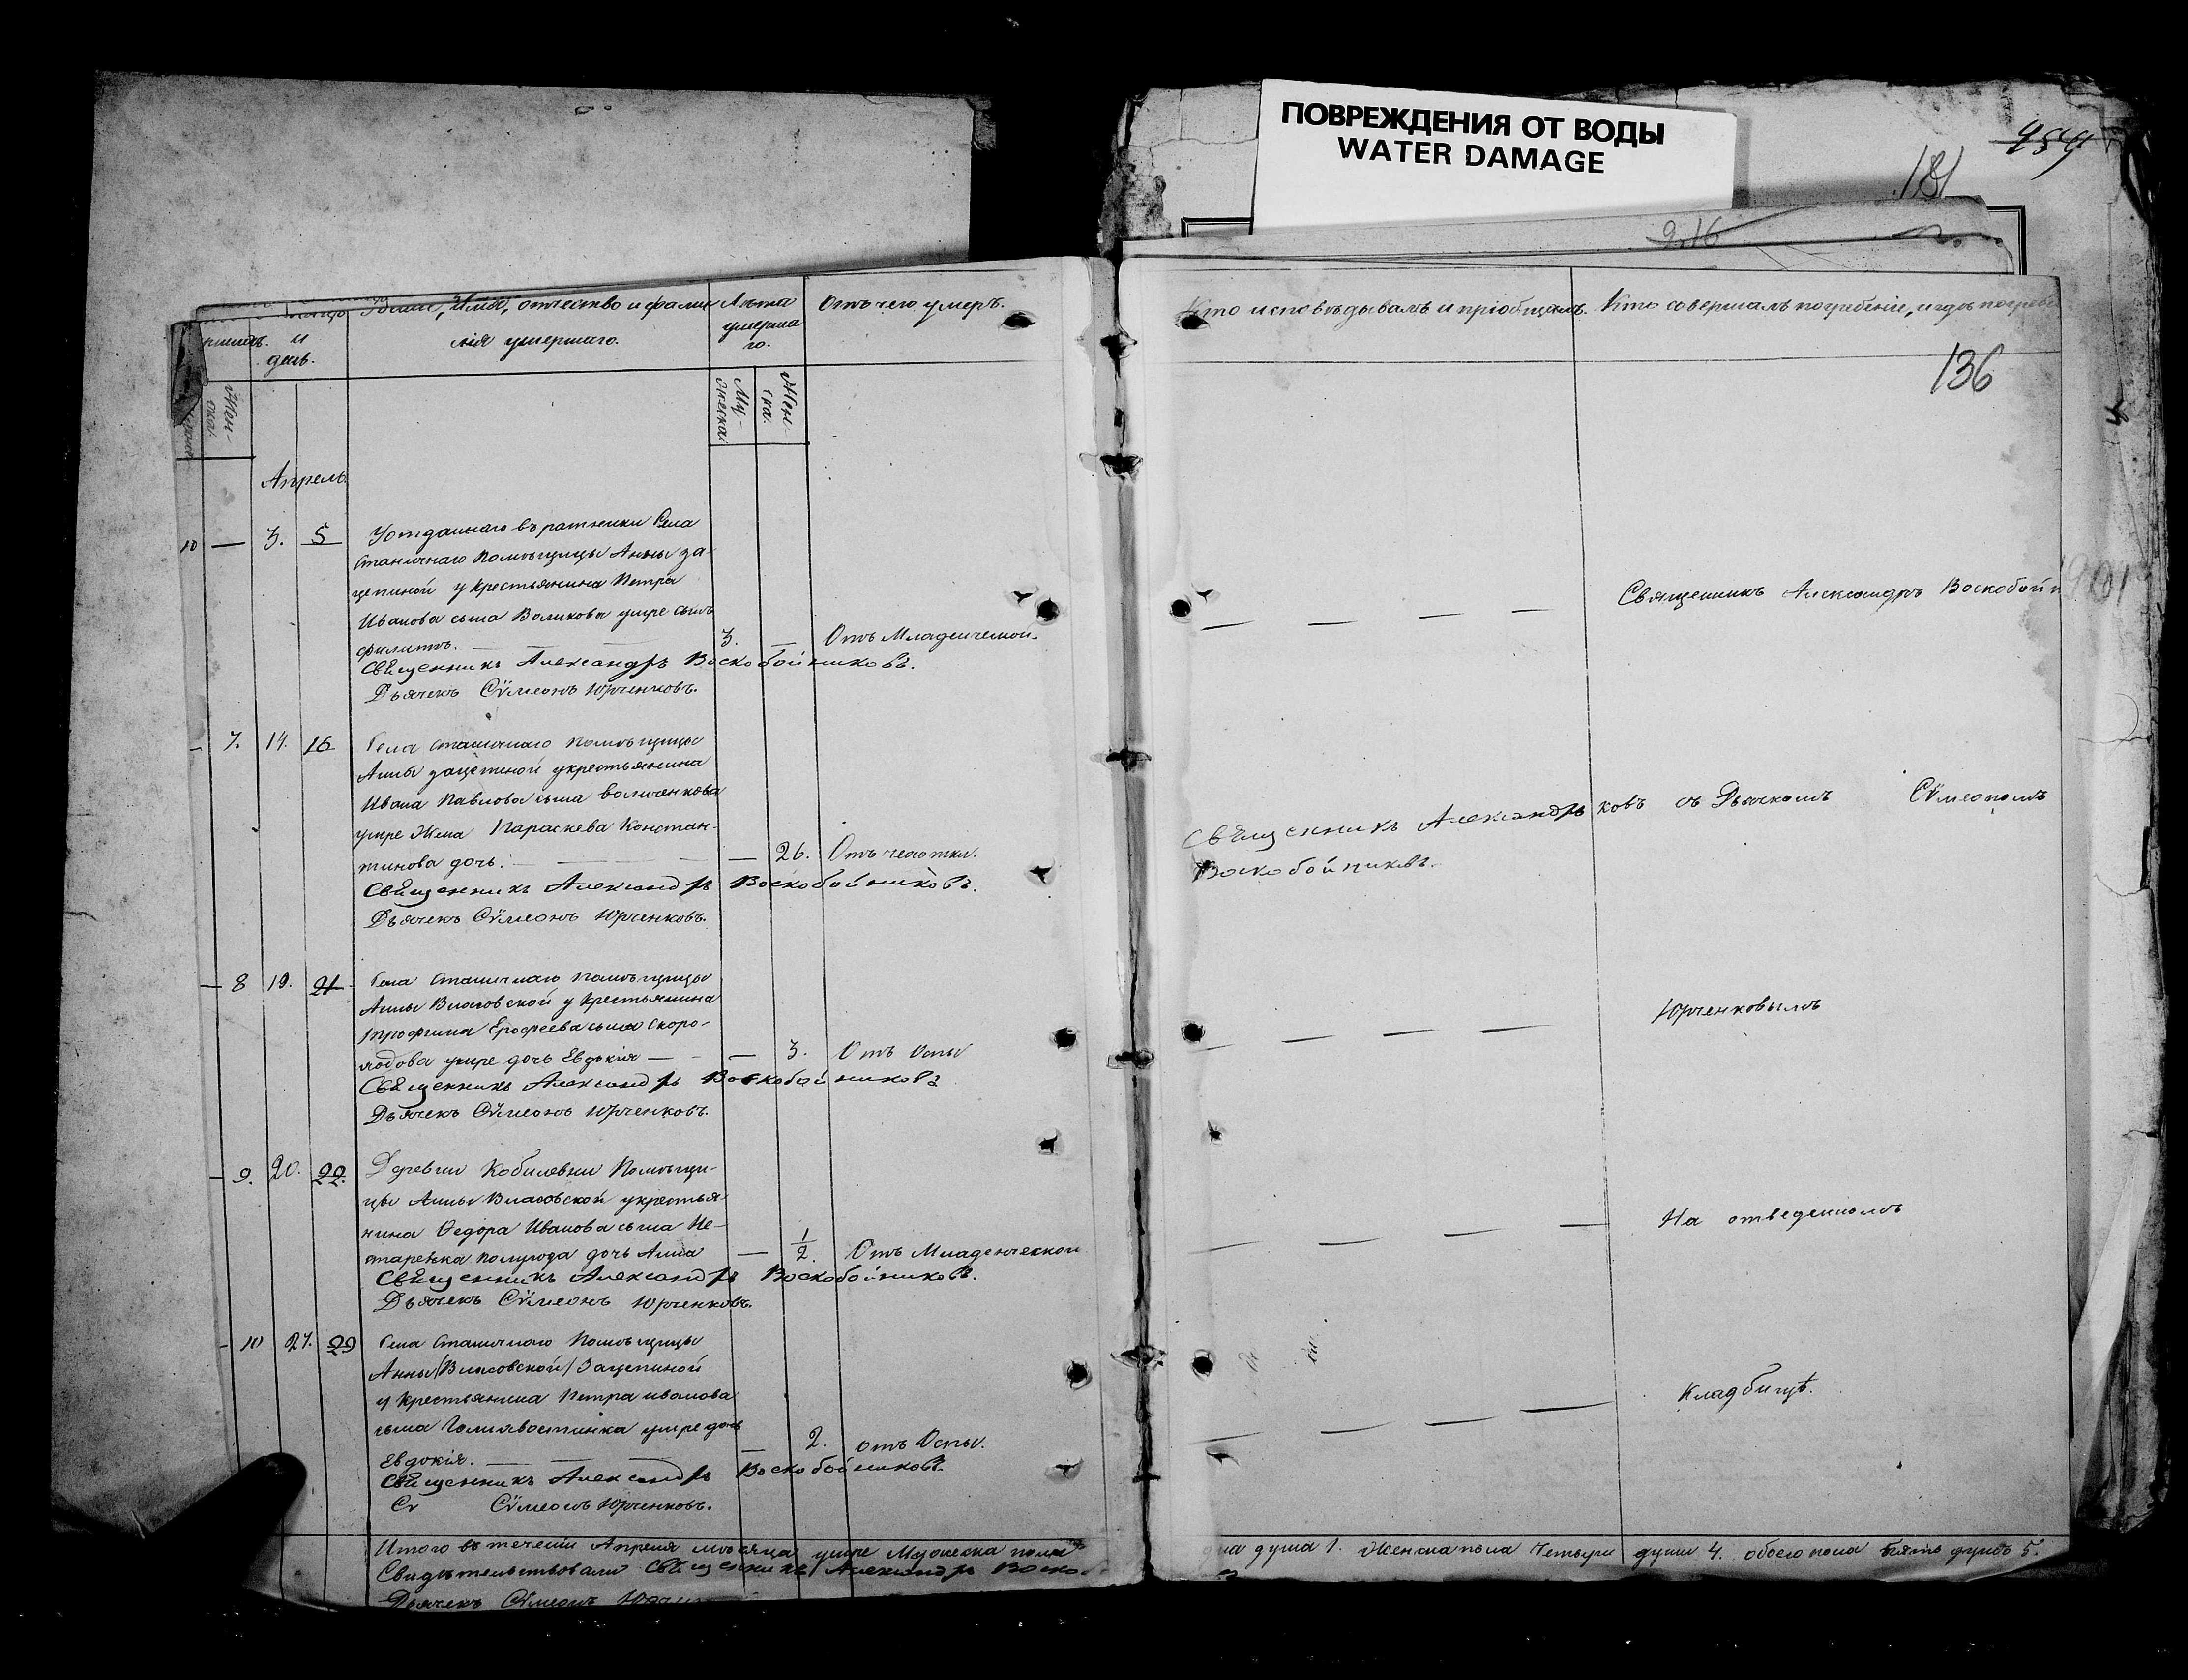 ПОВРЕЖДЕНИЯ ОТ ВОДЫ
WATER DAMAGE
181
216
136
Званіе, Имя, отчество и фами
лія умершаго.
Лѣта
умерша
го.
Отъ чего умеръ.
и
день.
Жен-
ска.
Му-
жеска.
Жен-
ска.
Апрель.
10 — 3. 5 Уотданнаго въ ратники Села
Станичнаго Помѣщицы Анны За-
цепиной у крестьянина Петра
Иванова сына Воликова умре сынъ
Филипъ. — 3. — Отъ Младенческой.
Священникъ Александръ Воскобойниковъ.
Дьячекъ Сѵмеонъ Юрченковъ.
— 7. 14. 16 Села Станичнаго Помѣщицы
Анны Зацепиной укрестьянина
Ивана Павлова сына Воличенкова
умре Жена Параскева Констан-
тинова дочь. — 26. Отъ чахотки.
Священникъ Александръ Воскобойниковъ.
Дьячекъ Сѵмеонъ Юрченковъ.
— 8 19. 21 Села Станичнаго Помѣщицы
Анны Власовской у крестьянина
Трофима Ерофеева сына Скоро-
ядова умре дочь Евдокія — — 3. Отъ Оспы
Священникъ Александръ Воскобойниковъ
Дьячекъ Сѵмеонъ Юрченковъ.
— 9. 20. 22. Деревни Кобилевки Помѣщи-
цы Анны Власовской укрестья-
нина Ѳедора Иванова сына Не-
старенка полугода дочь Анна — 1/2. Отъ Младенческой
Священникъ Александръ Воскобойниковъ.
Дьячекъ Сѵмеонъ Юрченковъ.
— 10 27. 29 Села Станичнаго Помѣщицы
Анны /Власовской/ Зацепиной
у крестьянина Петра иванова
сына Голихвостинка умре дочь
Евдокія. — 2. отъ Оспы.
Священникъ Александръ Воскобойниковъ
Сѵ Сѵмеонъ Юрченковъ.
Итого въ теченіи Апреля мѣсяца умре Мужеска пола
Свидѣтельствовали Священникъ Александръ Воско
Дьячекъ Сѵмеонъ
Кто исповѣдывалъ и пріобщалъ. Кто совершалъ погребеніе, и гдѣ погребе
Священникъ Александръ Воскобойн
Священникъ Александръ
Воскобойниковъ.
ковъ съ Дьячкомъ Сѵмеономъ
Юрченковымъ
На отведенномъ
Кладбищѣ.
на душа 1. Женска пола Четыри души 4. обоего пола пять душъ 5.